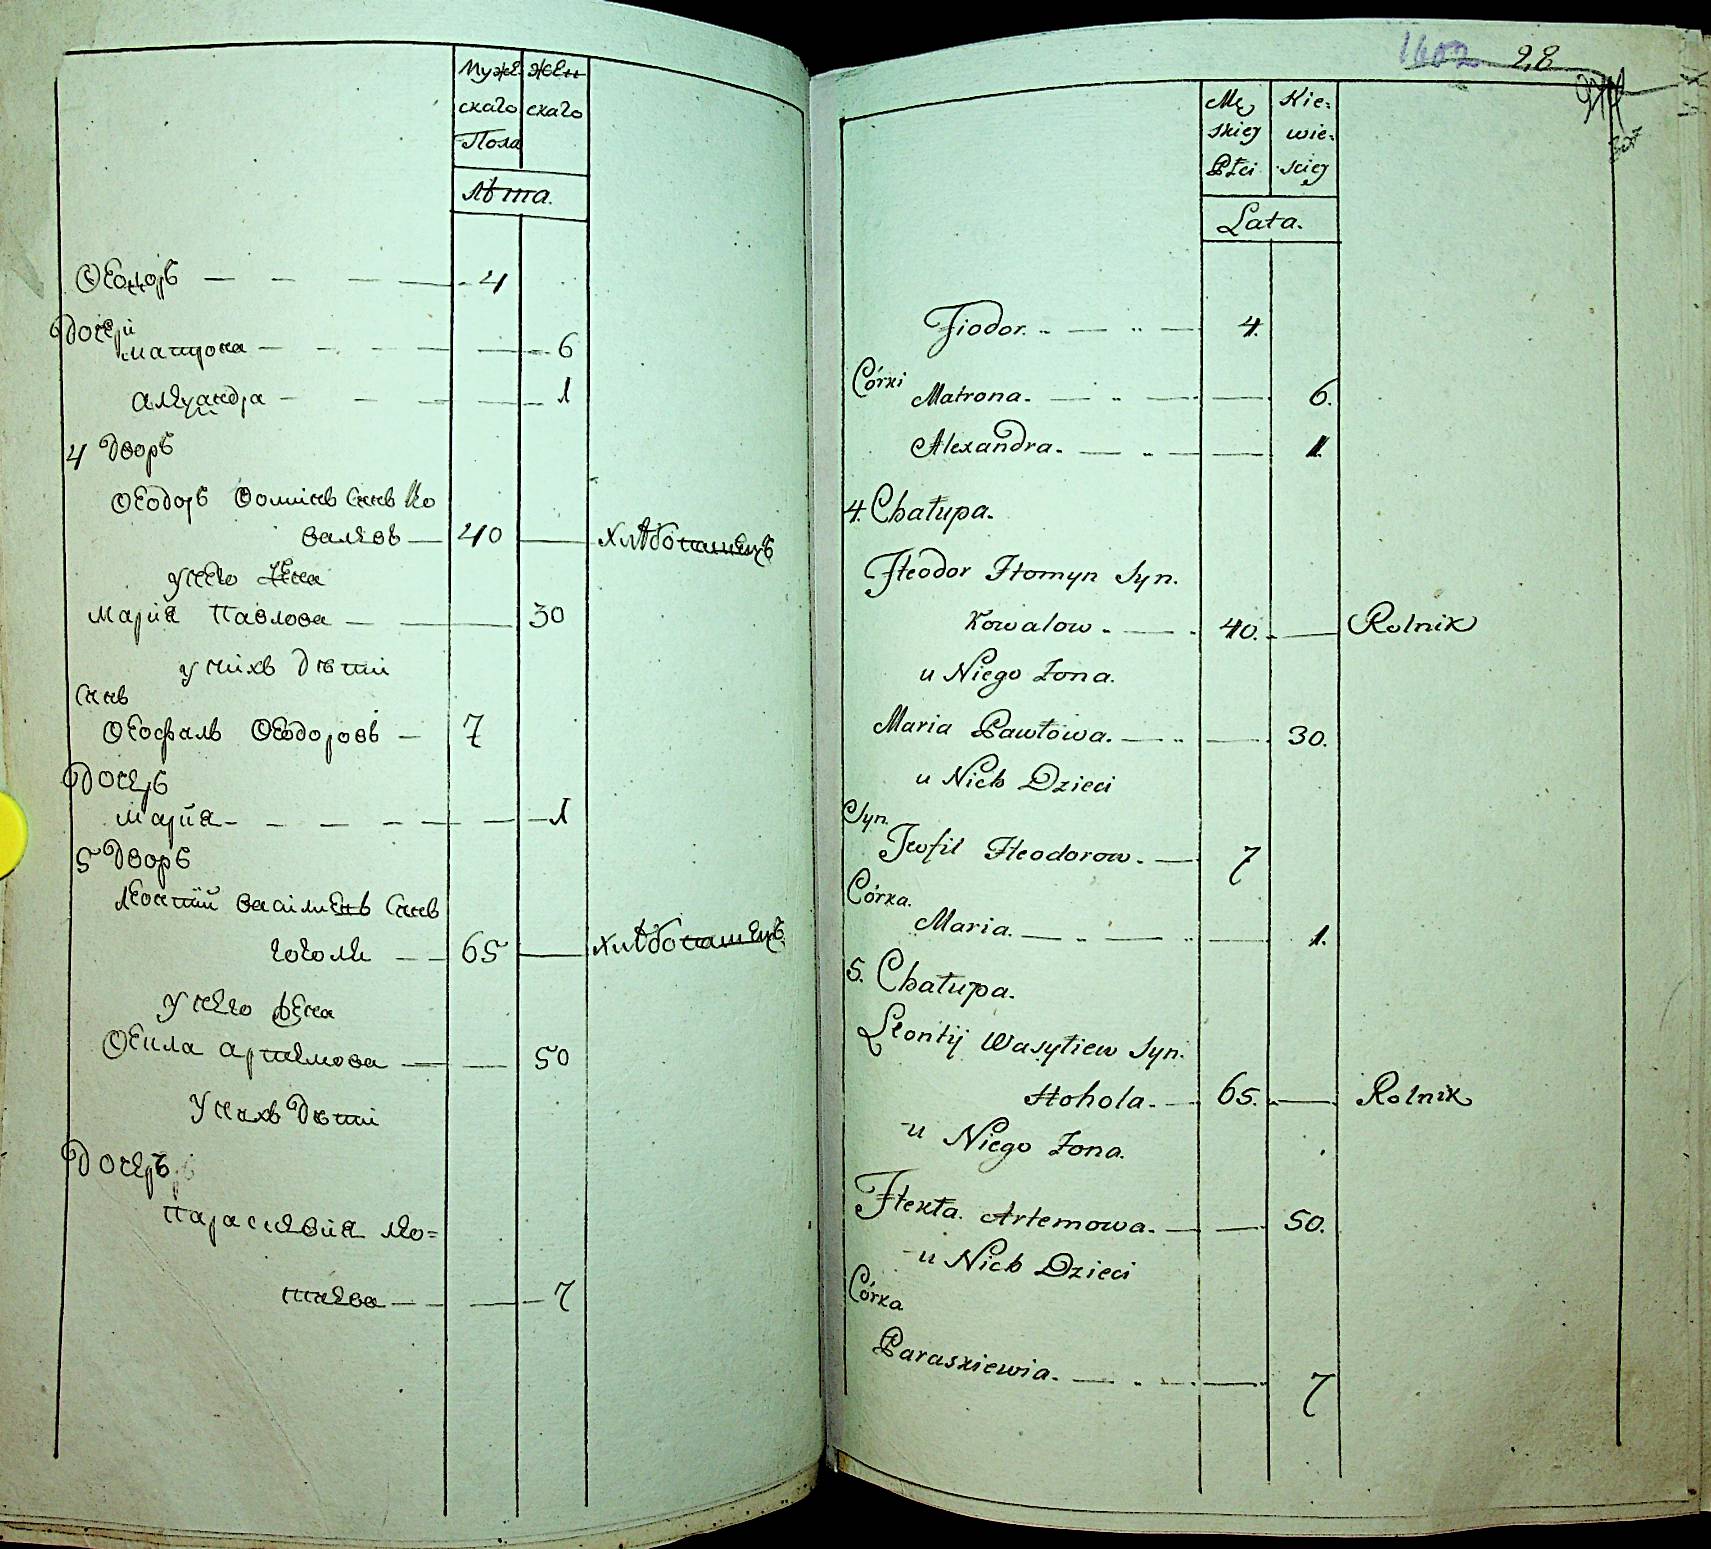 Муже Жен
скаго скаго
Пола
лѣта.
Ѳеодоръ — — — — 4
Дочери
матрона — — — — — 6
александра — — — — 1
4 Дворъ
Ѳеодоръ Ѳоминъ Сынъ Ко
валевъ — 40 — хлѣбопашецъ
унего жена
мариа Павлова — — — 30
унихъ дѣти
Сынъ
Ѳеофилъ Ѳеодоровъ — 7
Дочерь
мариа — — — — — 1
5 Дворъ
Леонтий василиевъ Сынъ
гоголя — — 65 — хлѣбопашецъ
унего жена
Ѳекла артемова — — 50
унихъ дѣти
Дочерь
Параскевиа Лео=
нтиева — — — — 7
1602 28
Mę Kie:
skiej wie:
Płci skiej
Lata.
Fiodor. — — 4.
Córki
Matrona. — — 6.
Alexandra. — — 1.
4. Chałupa.
Fteodor Ftomyn Syn.
Kowalow. — 40. — Rolnik
u Niego Zona.
Maria Pawłowa. — — 30.
u Nich Dzieci
Syn.
Teofil Fteodorow. — 7
Córka.
Maria. — — 1.
5. Chałupa.
Leontij Wasyliew Syn.
Hohola. — 65. — Rolnik
u Niego Zona.
Ftekła Artemowa. — — 50.
u Nich Dzieci
Córka
Paraskiewia. — — 7